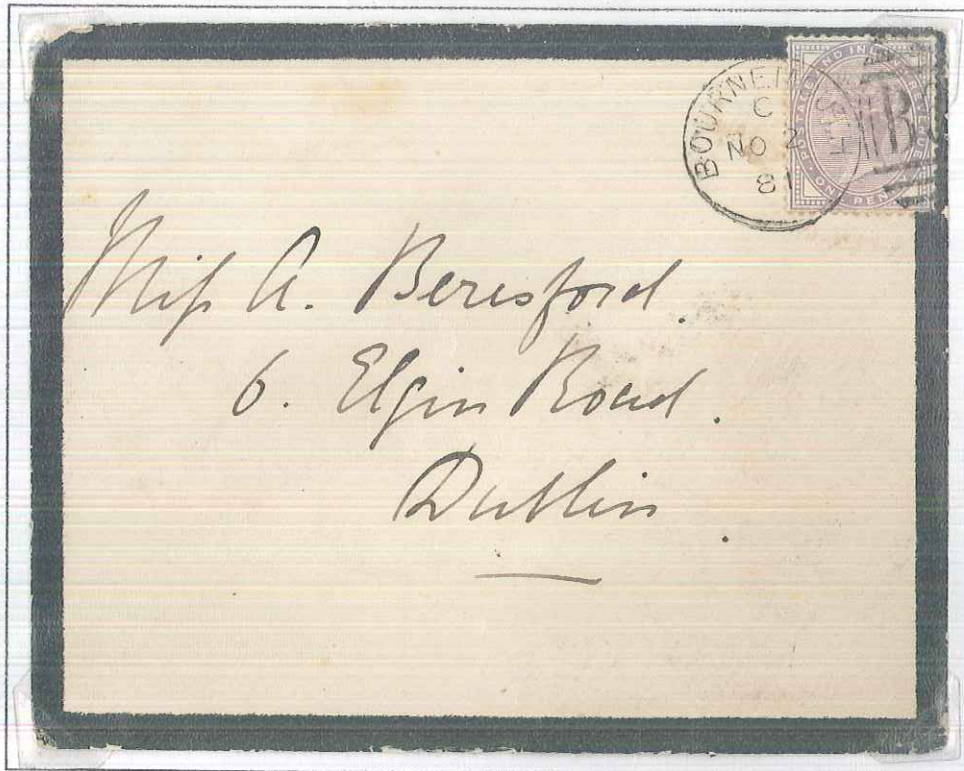 BOURNEMOUTH
C
NO 2
81
POSTAGE AND INLAND REVENUE
ONE PENNY
Miſs A. Beresford.
6. Elgin Road.
Dublin.